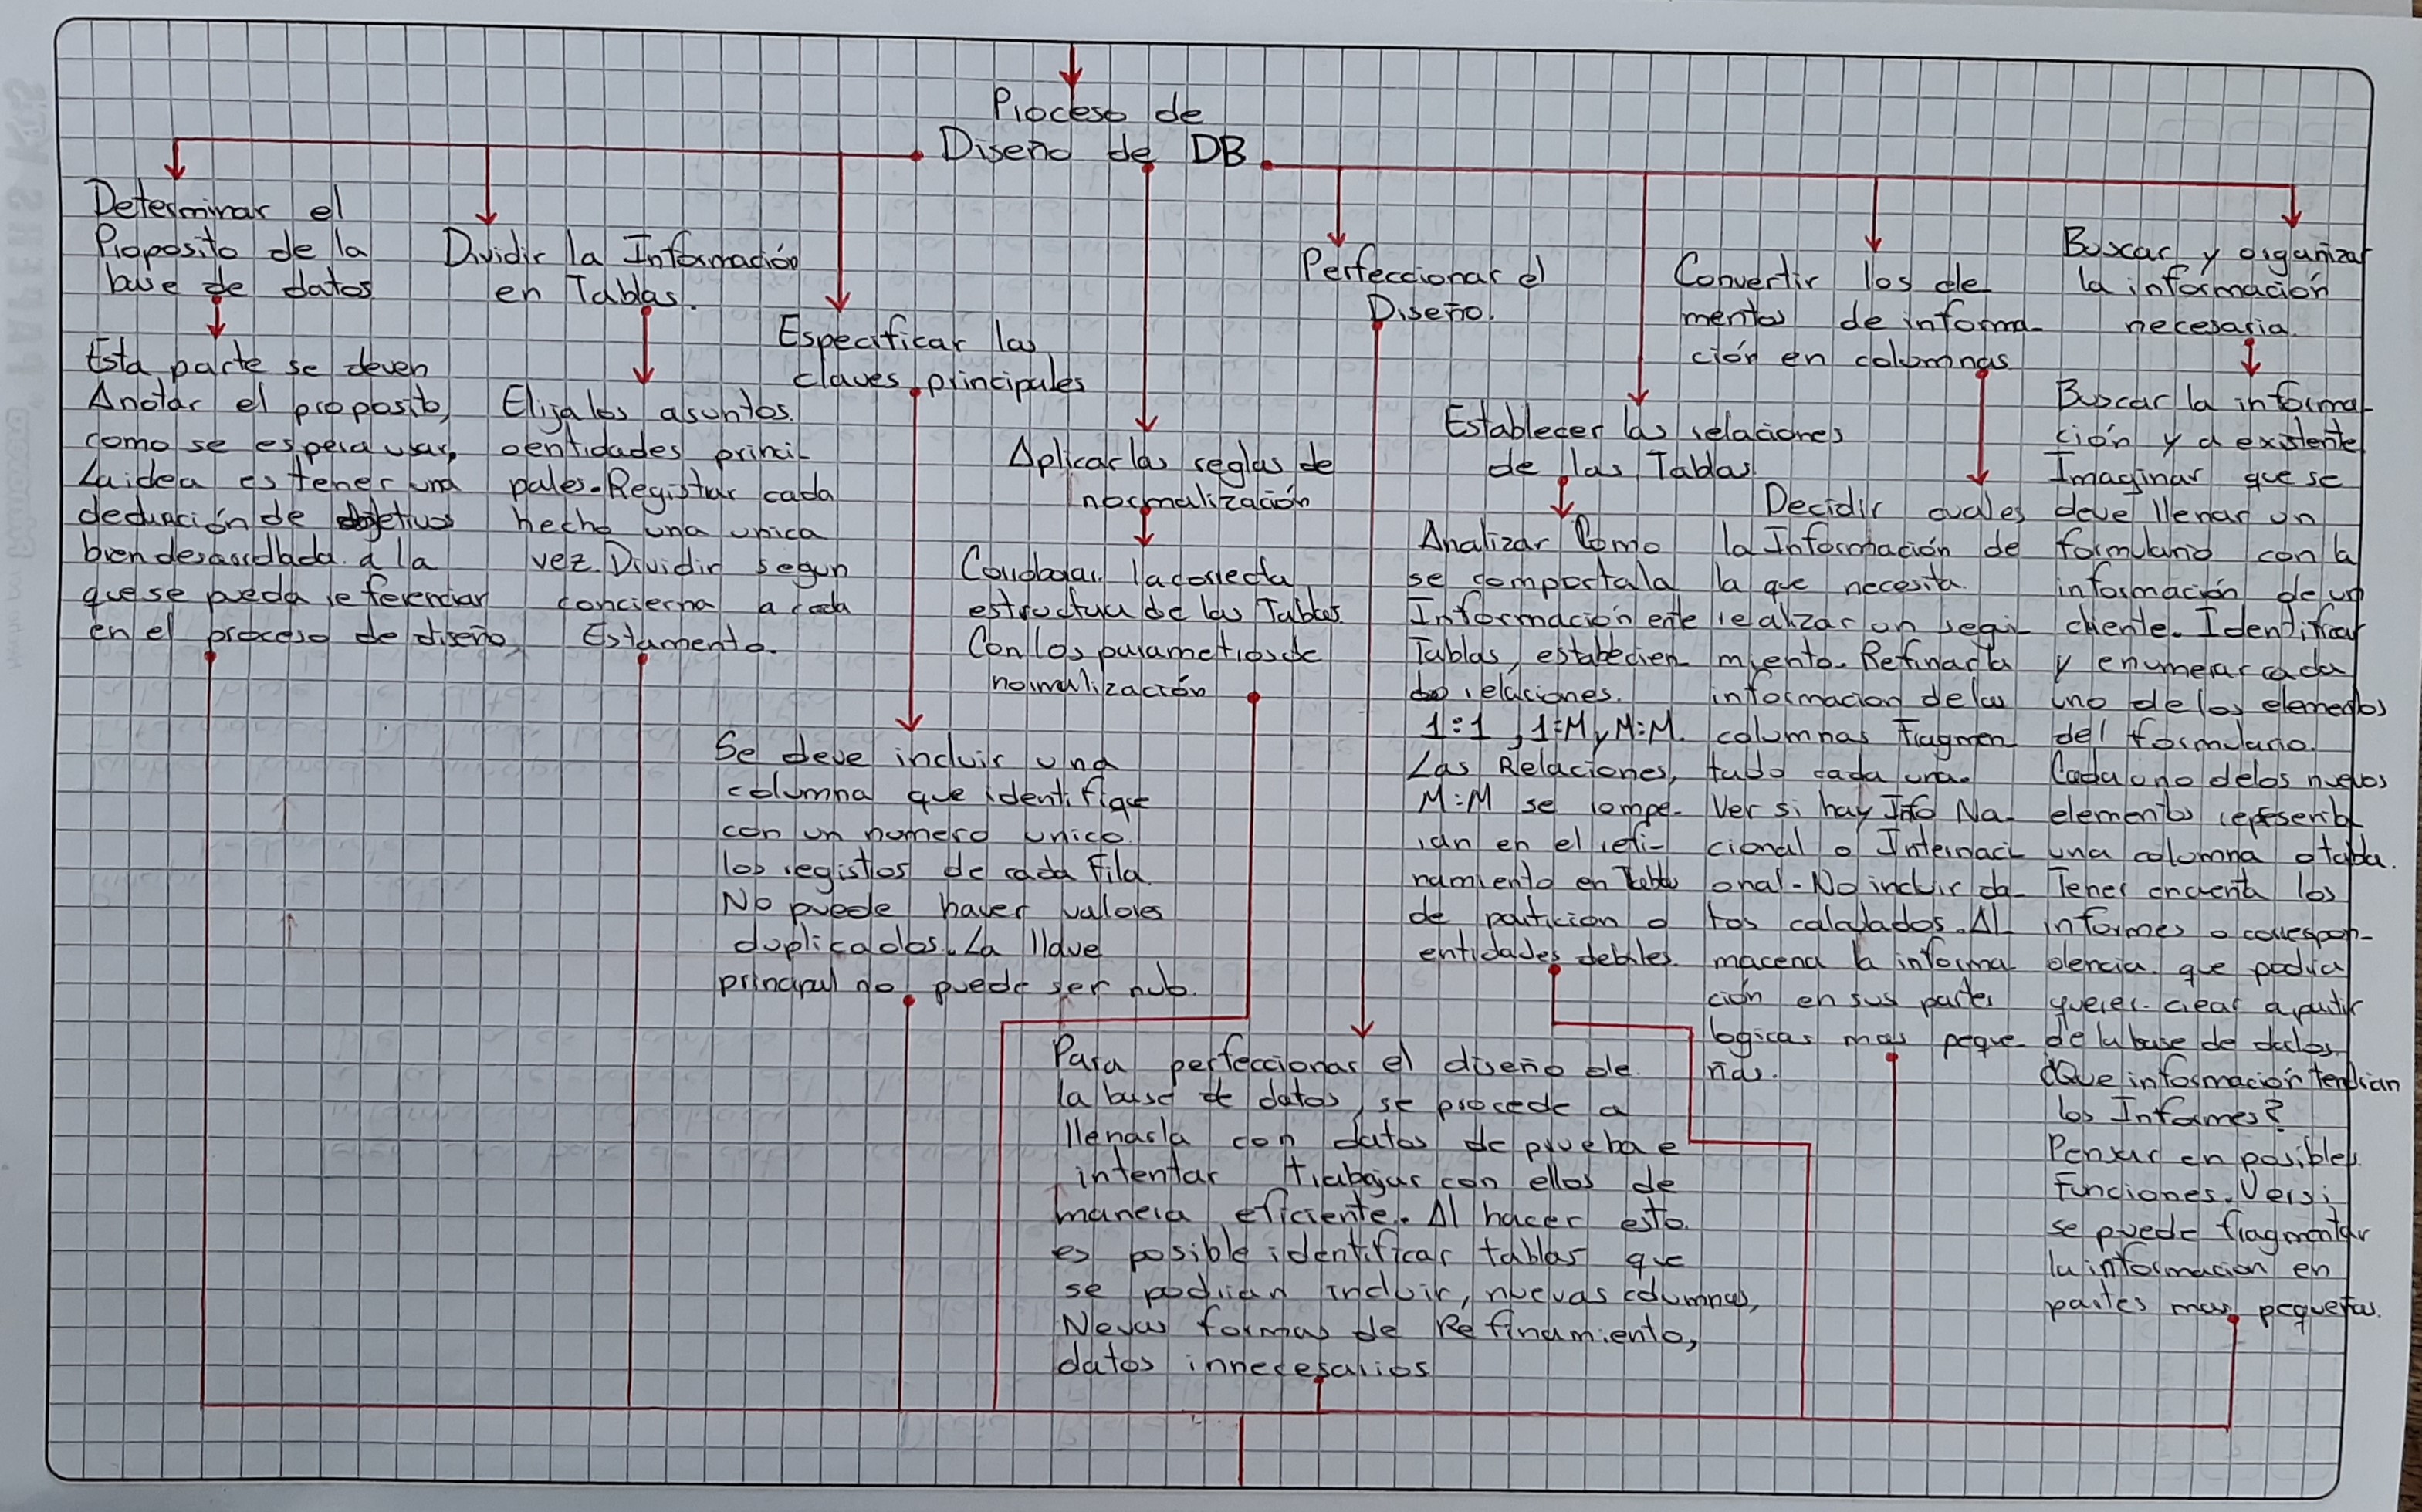 Proceso de
Diseño de DB
Determinar el
Proposito de la
base de datos
Esta parte se deven
Anotar el proposito,
como se espera usar,
La idea es tener una
de objetivos
bien desarrollada a la
que se pueda referenciar
en el proceso de diseño
Dividir la Información
en Tablas.
Elija los asuntos
o entidades princi-
pales. Registrar cada
hecho una unica
vez. Dividir segun
concierna a cada
Estamento.
Especificar las
claves principales
Se deve incluir una
columna que identifique
con un numero unico
los registros de cada fila
No puede haver valores
duplicados. La llave
principal no puede ser nulo.
Aplicar las reglas de
normalización
la correcta
estructura de las Tablas
Con los parametros de
normalización
Perfeccionar el
Diseño.
Para perfeccionar el diseño de
la base de datos, se procede a
llenarla con datos de prueba e
intentar trabajar con ellos de
manera eficiente. Al hacer esto
es posible identificar tablas que
se podrian incluir, nuevas columnas,
Nevas formas de Refinamiento,
datos innecesarios
Establecer las relaciones
de las Tablas
Analizar Como
se comporta la
Información
Tablas, establecien
do relaciones.
1:1, 1:M y M:M.
Las Relaciones,
M:M se rompe-
ran en el refi-
namiento en Tablas
de particion o
entidades debiles
Convertir los ele
mentos de informa-
ción en columnas
Decidir cuales
la Información de
la que necesita
realizar un segui-
miento. Refinar la
informacion de las
columnas Fragmen
tado cada una.
Ver si hay Info Na-
cional o Internaci
onal. No incluir da-
tos calculados. Al
macena la informa
ción en sus partes
logicas mas peque
ñas.
Buscar y organizar
la información
necesaria.
Buscar la informa-
ción ya existente
Imaginar que se
deve llenar un
formulario con la
información de un
cliente. Identificar
y enumerar cada
uno de los elementos
del formulario.
Cada uno de los nuevos
elementos
una columna o tabla.
Tener encuenta los
informes o correspon-
dencia que podria
querer crear a partir
de la base de datos
¿Que información tendrian
los Informes?
Pensar en posibles
Funciones. Ver si
se puede fragmentar
la informacion en
partes mas pequeñas.